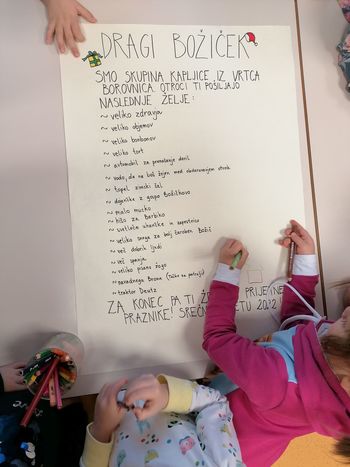 DRAGI BOŽIČEK
SMO SKUPINA KAPLJICE IZ VRTCA
BOROVNICA. OTROCI TI POŠILJAJO
NASLEDNJE ŽELJE:
~ veliko zdravja
~ veliko objemov
~ veliko bonbonov
~ veliko tort
~ avtomobil za prenašanje daril
~ vodo, da ne boš žejen med obdarovanjem otrok
~ topel zimski šal
~ dojenčka z gospo Božičkovo
~ malo muco
~ hišo za Barbiko
~ svetleče uhančke in zapestnico
~ veliko snega za bolj čaroben Božič
~ več dobrih ljudi
~ več spanja
~ veliko pisano žogo
~ navadnega Bruna
~ traktor Deutz
ZA KONEC PA TI PRIJETNE
PRAZNIKE! SREČNO LETU 2022